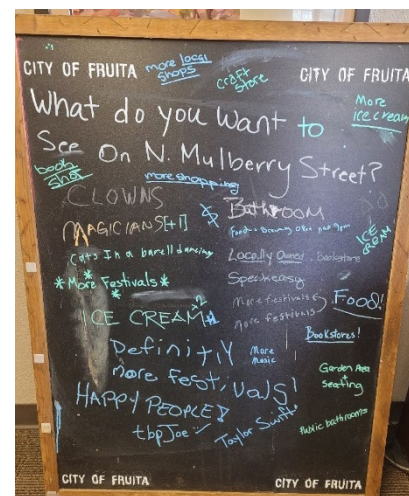 CITY OF FRUITA
more local
shops
craft
store
CITY OF FRUITA
What do you want to
More
ice cream
See On N. Mulberry Street?
book
shop
more shopping
CLOWNS
BathROOM
MAGICIANS [+1]
ICE
CREAM
Cats In a barell dancing
Locally Owned Bookstore
*More Festivals*
Speakeasy
More festivals
more festivals
Food!
ICE CREAM
Bookstores!
Definitly
more festivals!
More
Music
Garden Area
+
seating
HAPPY PEOPLE!
tbp Joe
Taylor Swift
Public bathrooms
CITY OF FRUITA
CITY OF FRUITA